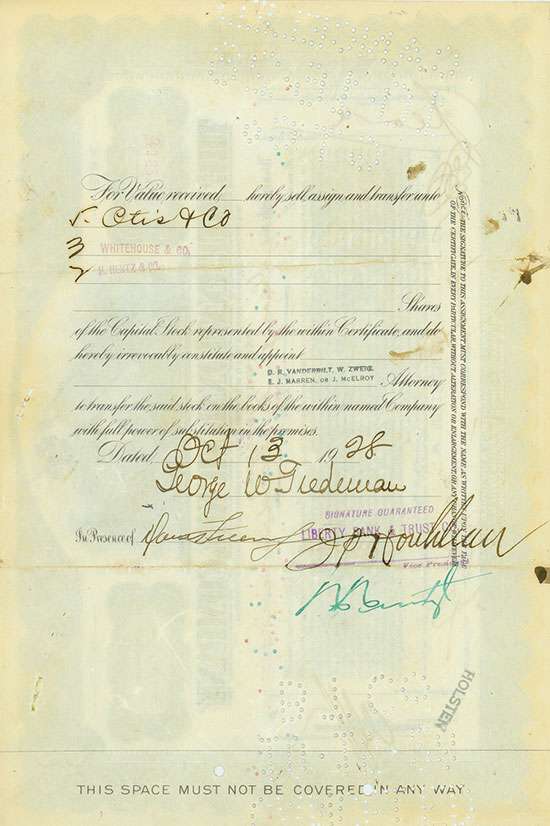 For Value received hereby sell, assign and transfer unto
5 Otis & Co
3 WHITEHOUSE & CO.
2 H. HENTZ & CO.
Shares
of the Capital Stock represented by the within Certificate, and do
hereby irrevocably constitute and appoint
D. R. VANDERBILT, W. ZWEIG,
E. J. MARREN, OR J. McELROY Attorney
to transfer the said stock on the books of the within named Company
with full power of substitution in the premises.
Dated Oct 13 1928
George W Tiedeman
SIGNATURE GUARANTEED
In Presence of
LIBERTY BANK & TRUST CO.
Vice President
NOTICE: THE SIGNATURE TO THIS ASSIGNMENT MUST CORRESPOND WITH THE NAME AS WRITTEN UPON THE FACE
OF THE CERTIFICATE IN EVERY PARTICULAR, WITHOUT ALTERATION OR ENLARGEMENT OR ANY CHANGE WHATEVER
HOLSTEN
THIS SPACE MUST NOT BE COVERED IN ANY WAY